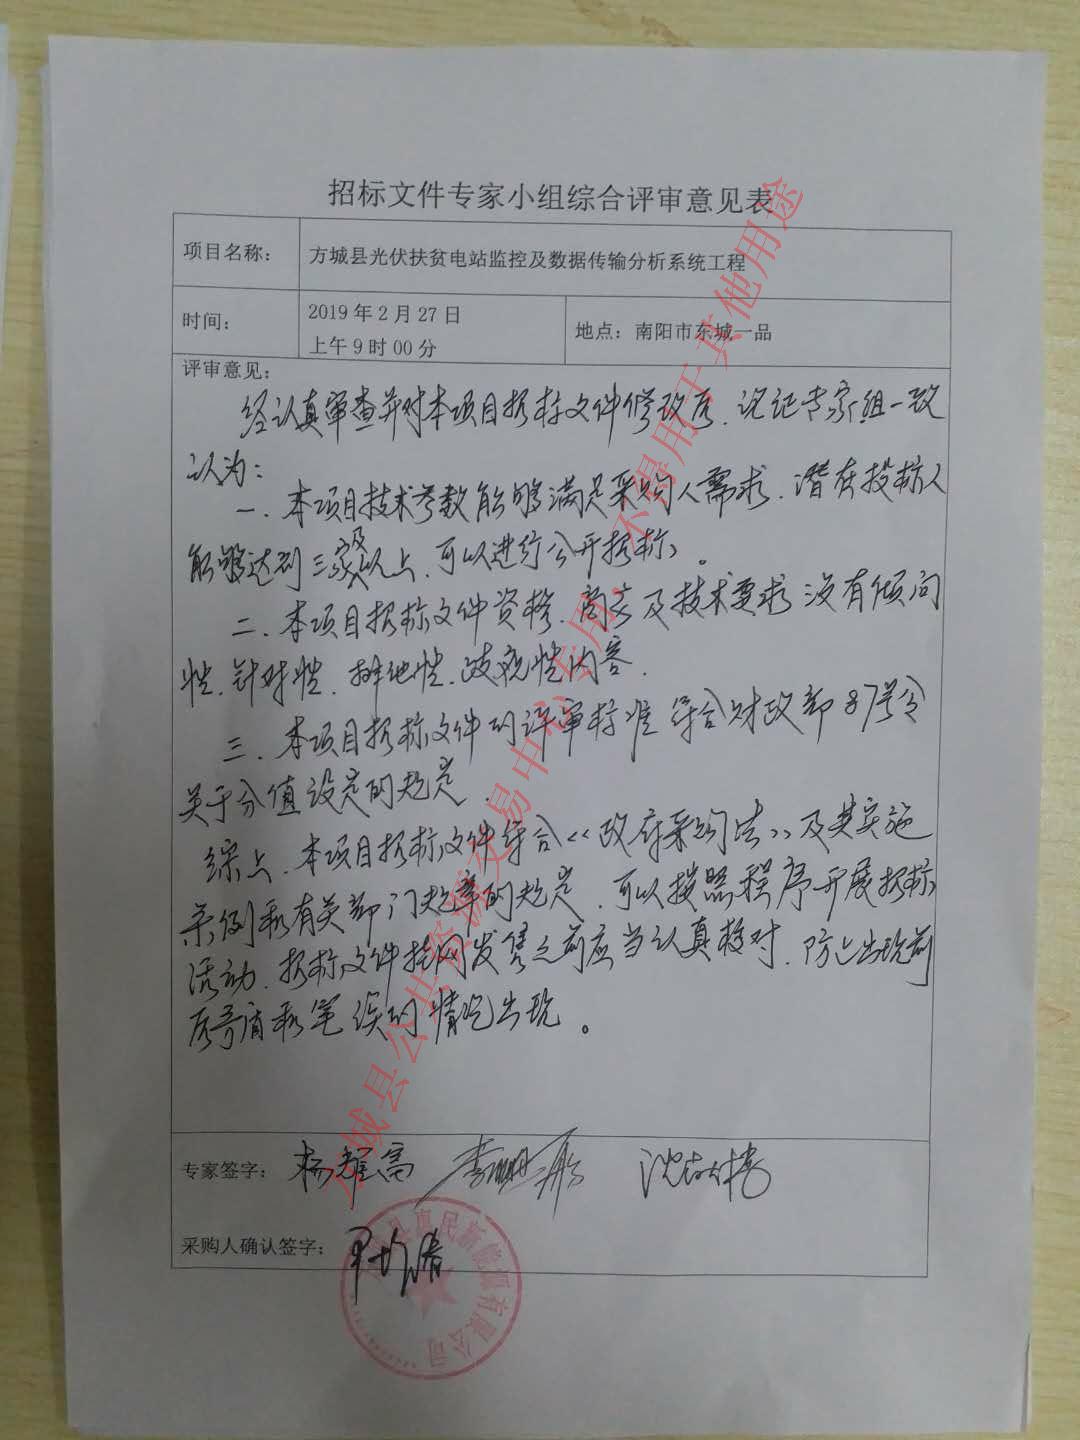 招标文件专家小组综合评审意见表
项目名称： 方城县光伏扶贫电站监控及数据传输分析系统工程
时间： 2019年2月27日
上午9时00分
地点：南阳市东城一品
评审意见：
经认真审查并对本项目招标文件修改后，论证专家组一致
认为：
一、本项目技术参数能够满足采购人需求，潜在投标人
能够达到三家及以上，可以进行公开招标。
二、本项目招标文件资格、商务及技术要求没有倾向
性、针对性、排他性、歧视性内容.
三、本项目招标文件的评审标准符合财政部87号令
关于分值设定的规定.
综上，本项目招标文件符合《政府采购法》及其实施
条例和有关部门规章的规定，可以按照程序开展招标
活动，招标文件挂网发售之前应当认真校对，防止出现前
后矛盾和笔误的情况出现。
专家签字：
采购人确认签字：
县惠民新能源有限公司
方城县公共资源交易中心专用，不得用于其他用途